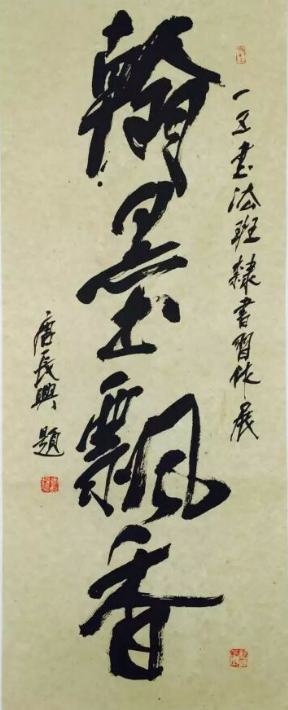 一 書法班隸書習作展
翰墨飄香
唐民興題